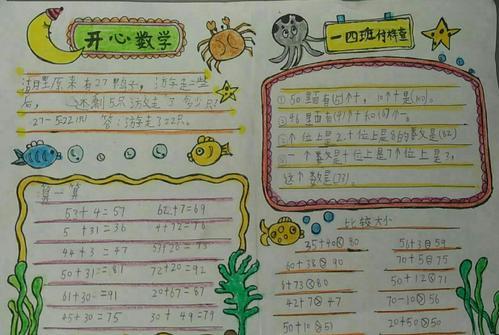 开心数学
湖里原来有27只鸭子,游走一些
后,还剩5只游走了多少只?
27-5=22(只) 答:游走了22只。
算一算
53+4=57 62+7=69
5+31=36 4+72=76
44+3=47 53+20=73
50+31=81 72+20=92
61+30=91 20+67=87
45+30=75 30+49=79
一四班付梓萱
①50里面有(5)个十,10个十是(100)。
②46里面有(4)个十和(6)个一。
③个位上是2,十位上是8的数是(82)
④一个数是十位上是7个位上是3,
这个数是(73)。
比较大小
35+40 80 56+3 59
60+38 90 70+5 75
6+73 80 50+12 71
42+7 47 70-10 56
50+10 51 20+50